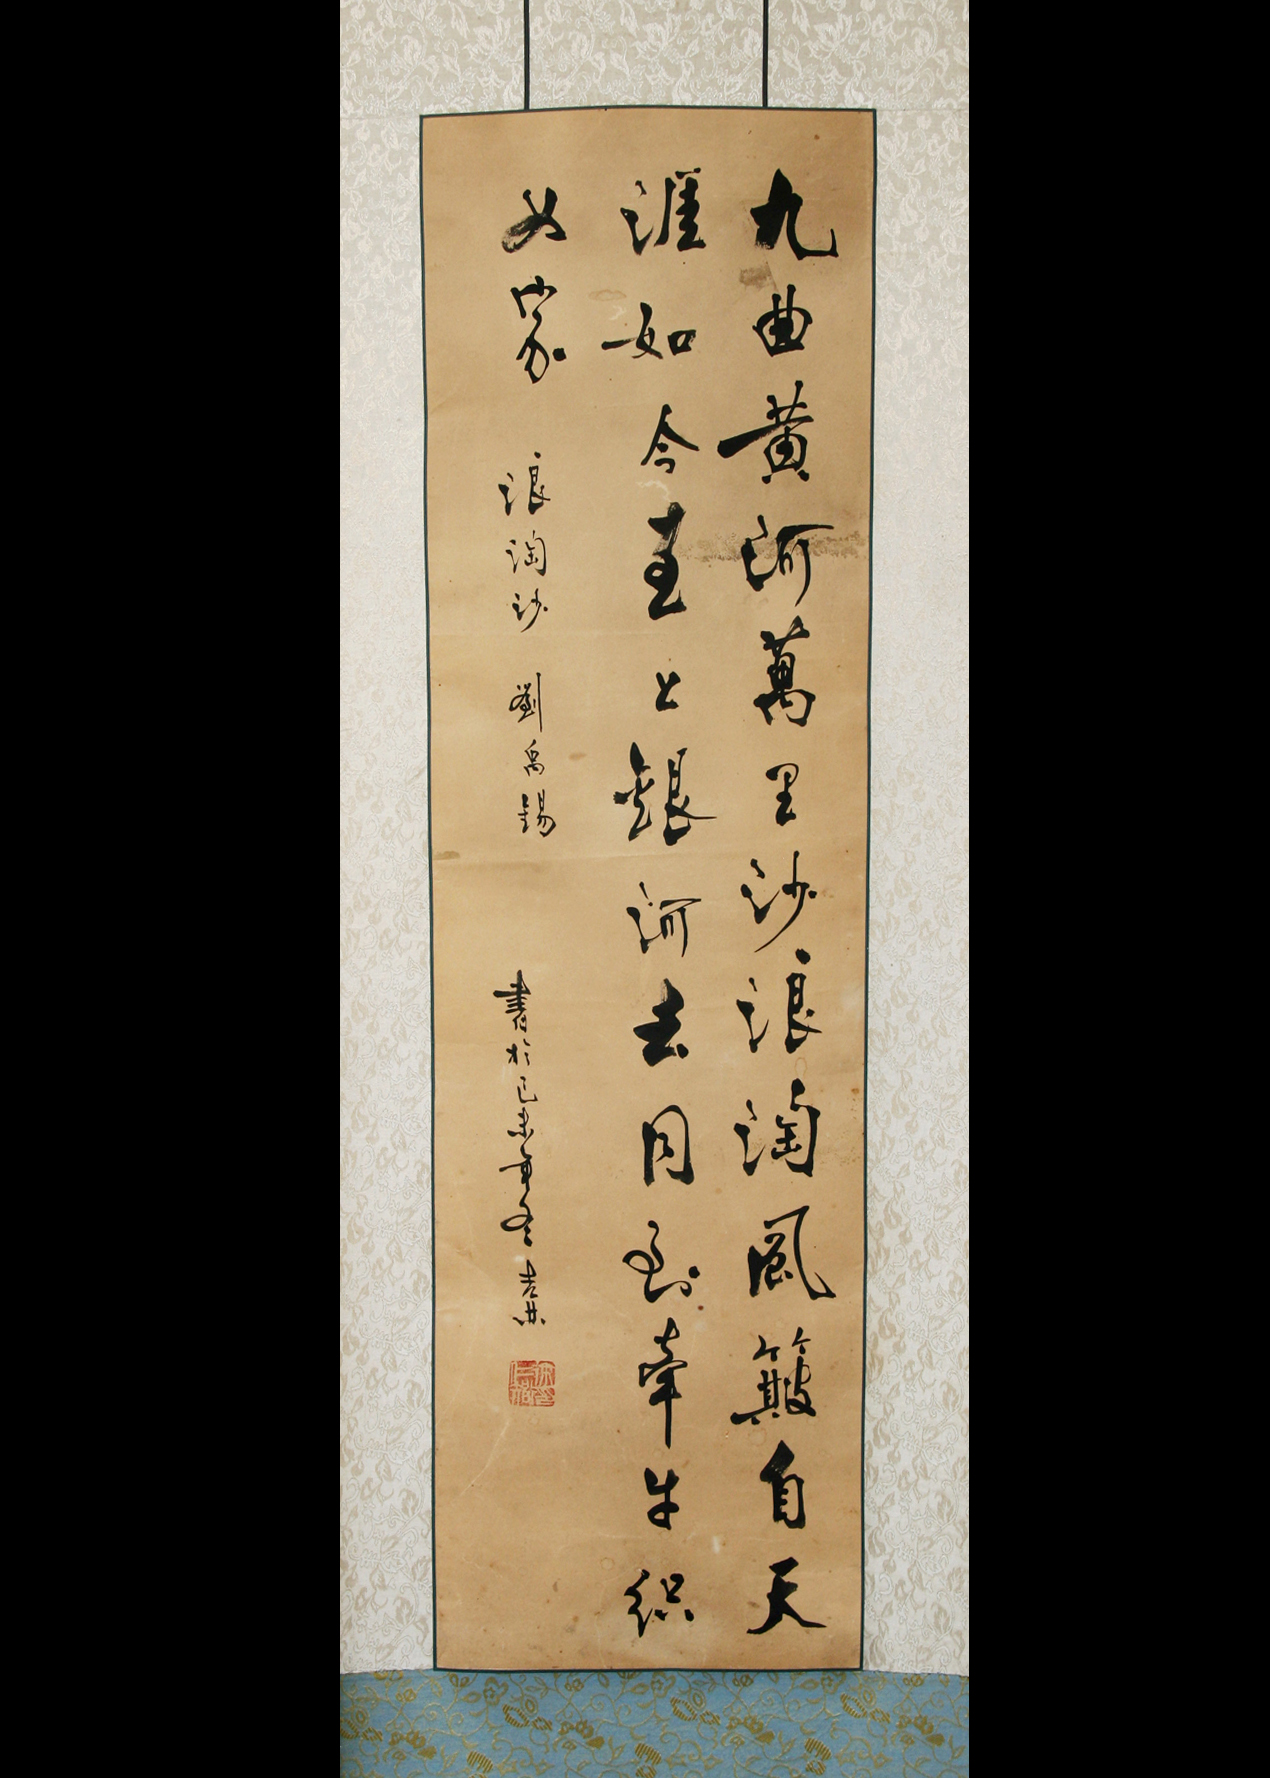 九曲黄河萬里沙浪淘風簸自天
涯如今直上銀河去同到牽牛织
女家 浪淘沙 劉禹錫 書於己未年冬